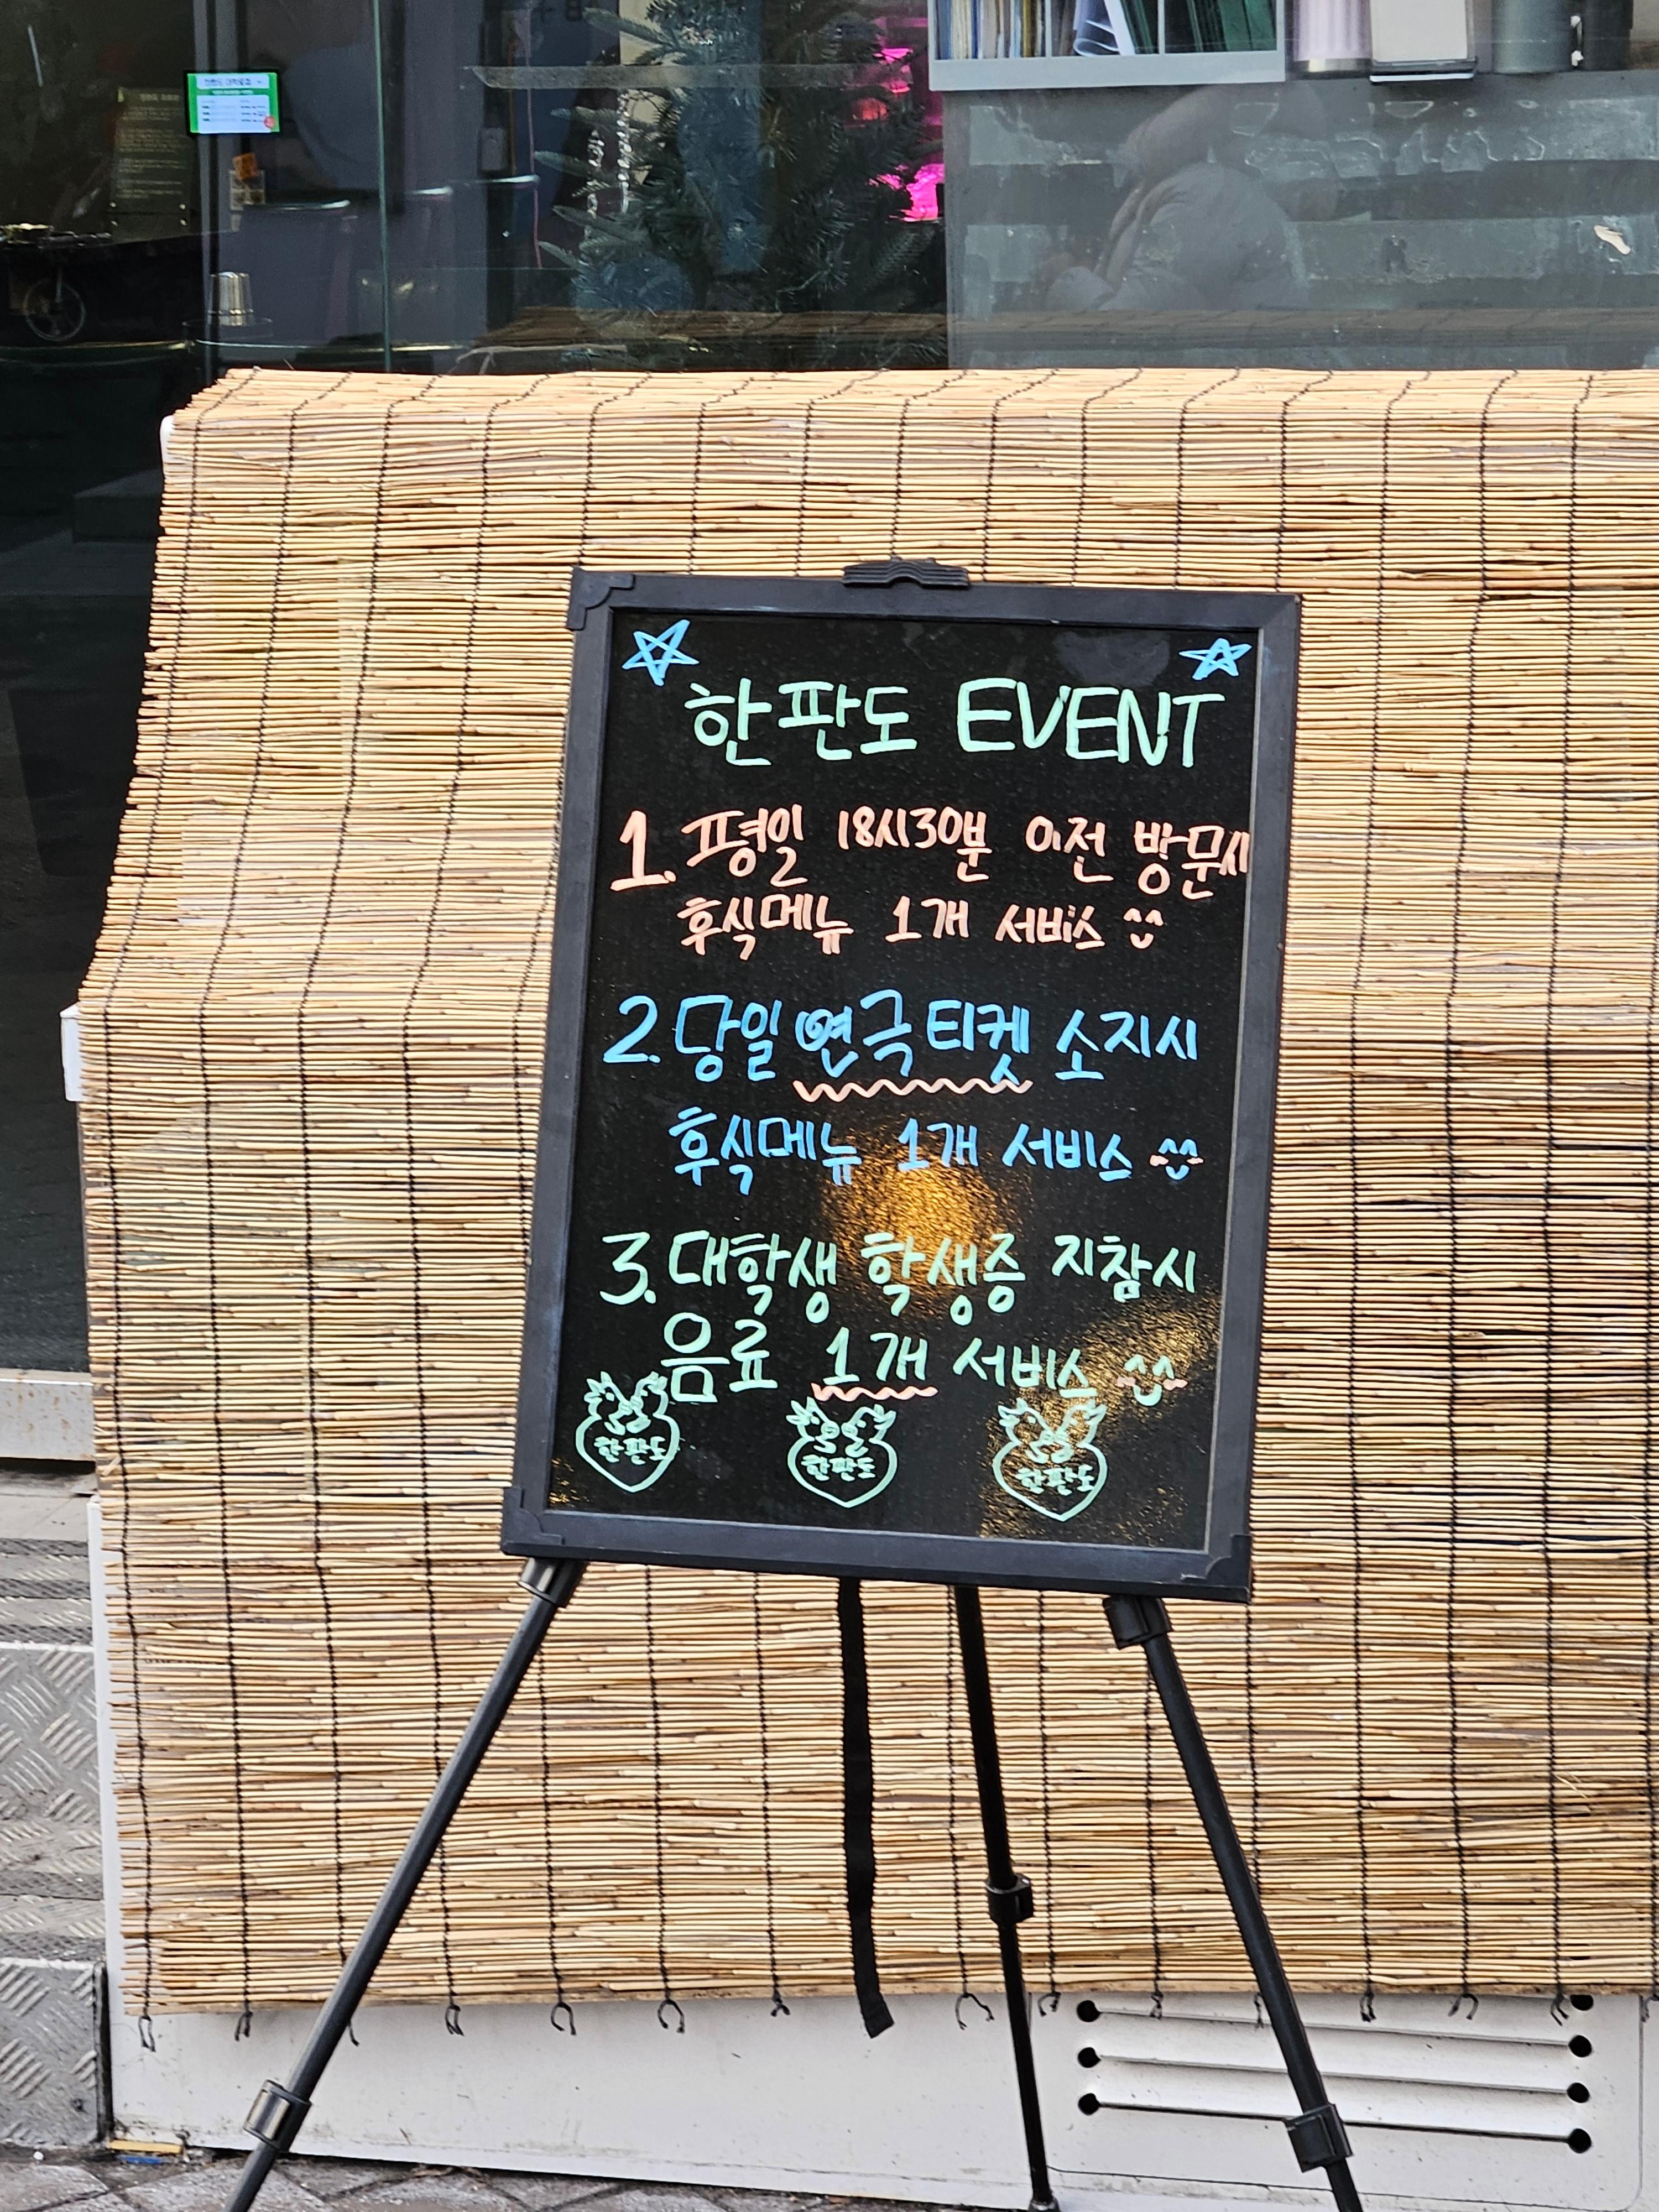 한판도 EVENT
1. 평일 18시30분 이전 방문시
후식메뉴 1개 서비스 ^^
2. 당일 연극티켓 소지시
후식메뉴 1개 서비스 ^^
3. 대학생 학생증 지참시
음료 1개 서비스 ^^
한판도 한판도 한판도